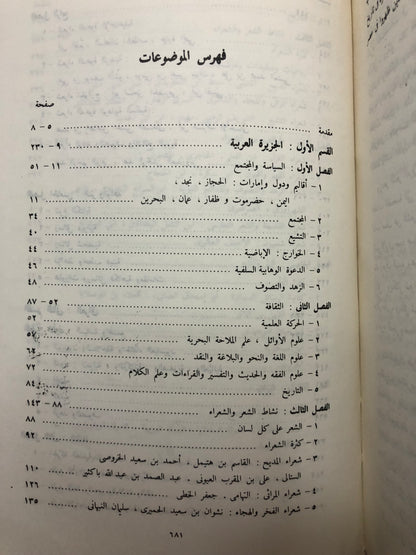 فهرس الموضوعات
صفحة
مقدمة ٥ – ٨
القسم الأول : الجزيرة العربية ٩ – ٢٣٠
الفصل الأول : السياسة والمجتمع ١١ – ٥١
١ – أقاليم ودول وإمارات : الحجاز ، نجد ،
اليمن ، حضرموت و ظفار ، عمان ، البحرين ١١
٢ – المجتمع ٣٤
٣ – التشيع ٤٠
٤ – الخوارج : الإباضية ٤٤
٥ – الدعوة الوهابية السلفية ٤٦
٦ – الزهد والتصوف ٤٨
الفصل الثانى : الثقافة ٥٢ – ٨٧
١ – الحركة العلمية ٥٢
٢ – علوم الأوائل ، علم الملاحة البحرية ٥٧
٣ – علوم اللغة والنحو والبلاغة والنقد ٦٢
٤ – علوم الفقه والحديث والتفسير والقراءات وعلم الكلام ٧٢
٥ – التاريخ ٨٤
الفصل الثالث : نشاط الشعر والشعراء ٨٨ – ١٤٣
١ – الشعر على كل لسان ٨٨
٢ – كثرة الشعراء ٩٢
٣ – شعراء المديح : القاسم بن هتيمل ، أحمد بن سعيد الخروصى
الستالى ، على بن المقرب العيونى ، عبد الصمد بن عبد الله باكثير ١١٠
٤ – شعراء المراثى : التهامى . جعفر الخطى ١٢٦
٥ – شعراء الفخر والهجاء : نشوان بن سعيد الحميرى ، سليمان النبهانى ١٣٥
٦٨١